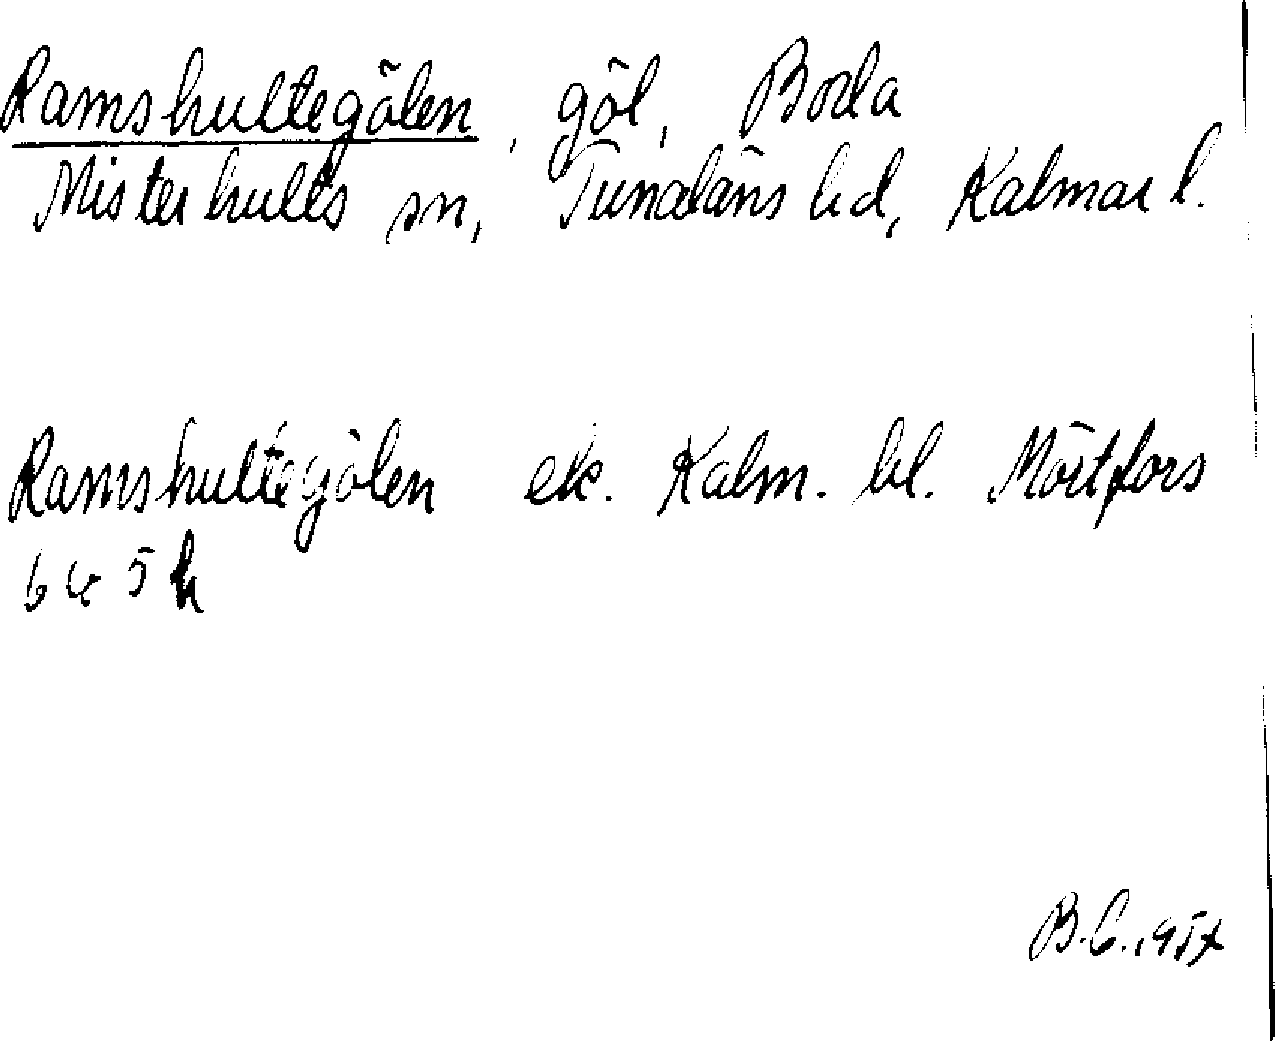 Ramshultegölen, göl, Boda
Misterhults sn, Tunaläns hd, Kalmar l.
Ramshultegölen ek. Kalm. bl. Mörtfors
6G 5h
B.C. 1957